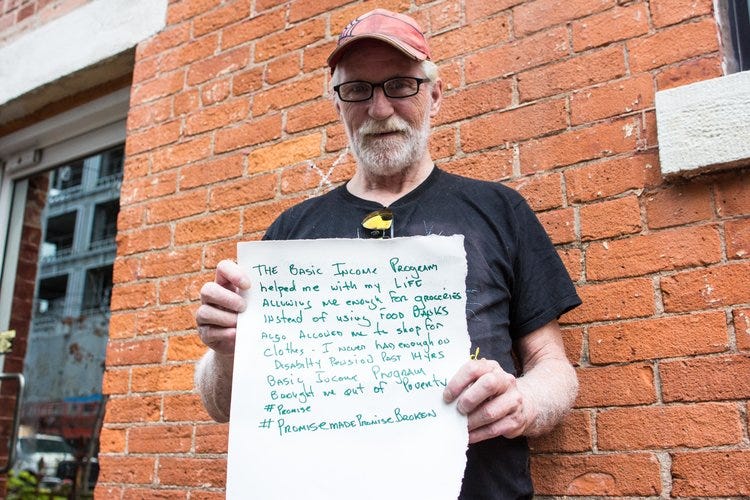 The Basic Income Program
helped me with my Life
Allowing me enough for groceries
Instead of using Food Banks
Also Allowed me to shop for
clothes. I never had enough on
Disabilty Pension Past 14 yrs
Basic Income Program
Brought me out of Poverty
#Promise
#PromisemadePromiseBroken